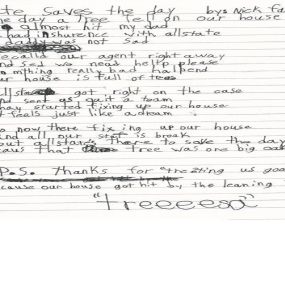 te Saves the day by: Nick fa
ne day a tree fell on our house
almost hit my dad
had inshurence with allstate
daddy was not sad
e calld our agent right away
nd sed we need hellp please
mthing really bad halpend
ur house is full of trees
llstate got right on the case
nd sent us quit a team
hay started fixing up our house
t feels just like a dream
o now there fixing up our house
nd all our stuf is break
out allstars there to save the day
caus that tree was one big oak
P.S. Thanks for treting us good
cause our house got hit by the leaning
"Treeeesa"